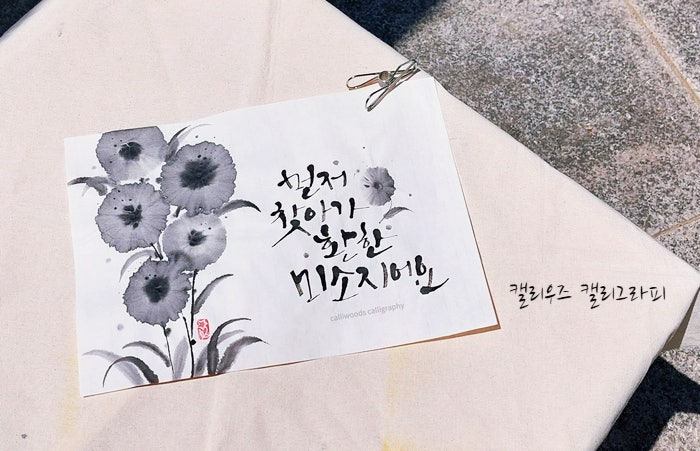 먼저
찾아가
환한
미소지어요
calliwoods calligraphy
캘리우즈 캘리그라피